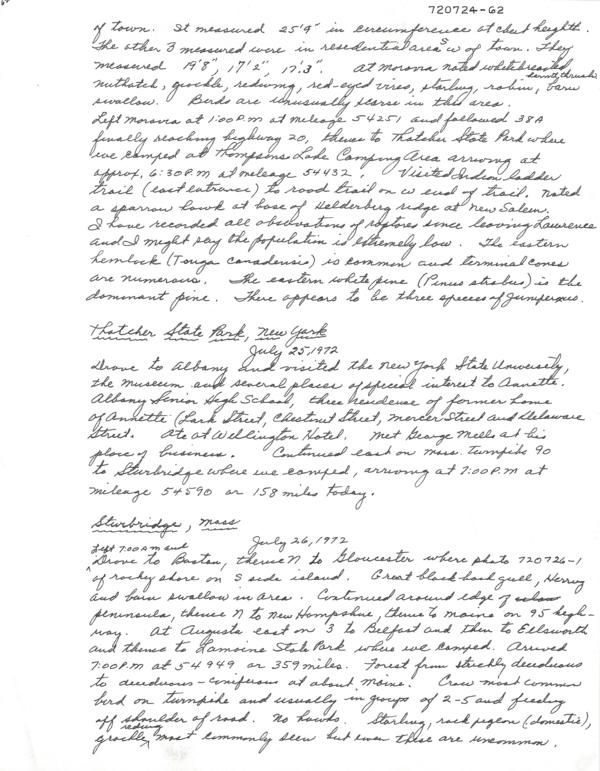 720724-62
of town. It measured 25'9" in circumference at chest heighth.
The other 3 measured were in residential areas w of town. They
measured 19'8", 17'2", 17'3". At Moravia noted white breasted
nuthatch, grackle, redwing, red-eyed vireo, starling, robin, barn
swallow. Birds are unusually scarse in this area.
Left Moravia at 1:00 P.M at mileage 54251 and followed 38A
finally reaching highway 20, thence to Thatcher State Park where
we camped at Thompsons Lake Camping Area arriving at
approx. 6:30 P.M at mileage 54432. Visited Indian ladder
trail (east entrance) to road trail on w end of trail. Noted
a sparrow hawk at base of Helderberg ridge at New Salem.
I have recorded all observations of raptores since leaving Lawrence
and I might say the population is extremely low. The eastern
hemlock (Tsuga canadensis) is common and terminal cones
are numerous. The eastern white pine (Pinus strobus) is the
dominant pine. There appears to be three species of Juniperus.
Thatcher State Park, New York
July 25, 1972
Drove to Albany and visited the New York State University,
the museum and several places of special interest to Annette.
Albany Senior High School, three residense of former home
of Annette (Lark Street, Chestnut Street, Mercer Street and Delaware
Street. Ate at Wellington Hotel. Met George Mells at his
place of business. Continued east on Mass. turnpike 90
to Sturbridge where we camped, arriving at 7:00 P.M at
mileage 54590 or 158 miles today.
Sturbridge, Mass
July 26, 1972
Left 7:00 A m and
Drove to Boston, thence N to Gloucester where photo 720726-1
of rocky shore on S side island. Great black-back gull, Herring
and barn swallow in area. Continued around edge of
peninsula, thence N to New Hampshire, thence to Maine on 95 high-
way. At Augusta east on 3 to Belfast and then to Ellsworth
and thence to Lamoine State Park where we camped. Arrived
7:00 P.M at 54949 or 359 miles. Forest from strickly deciduous
to deciduous-coniferous at about Maine. Crow most common
bird on turnpike and usually in groups of 2-5 and feeding
off shoulder of road. No hawks. Starling, rock pigeon (domestic),
grackle, redwing most commonly seen but even these are uncommon.